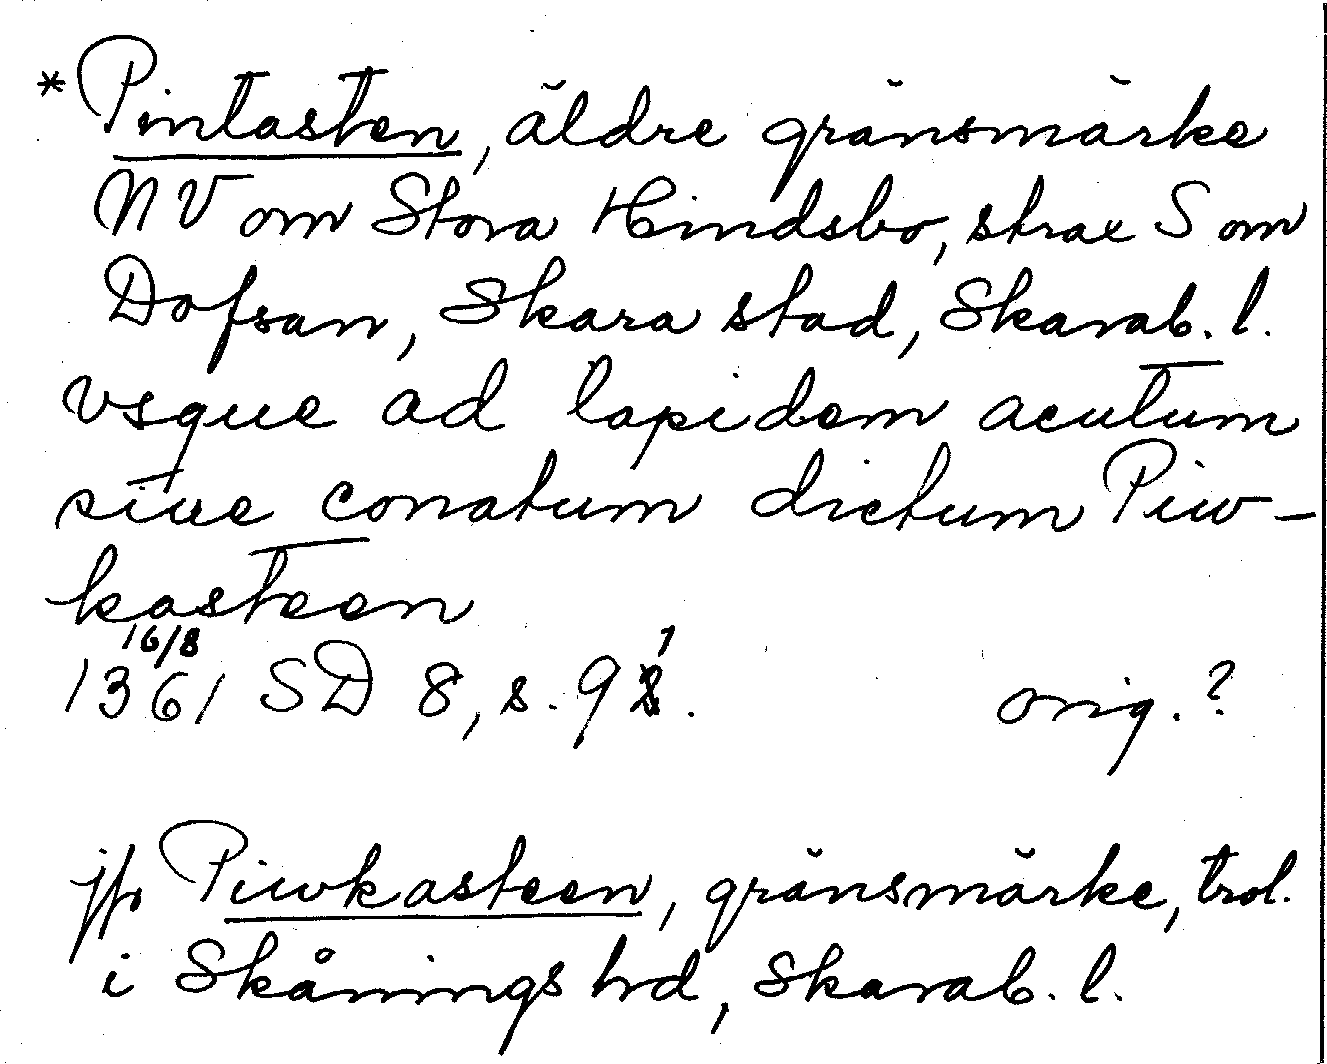 * Pintasten, äldre gränsmärke
NV om Stora Hindsbo, strax S om
Dofsan, Skara stad, Skarab. l.
vsque ad lapidem acutum
siue conatum dictum Piw-
kasteen
16/8
1361 SD 8, s. 91. orig.?
jfr Piwkasteen, gränsmärke, trol.
i Skånings hd, Skarab. l.